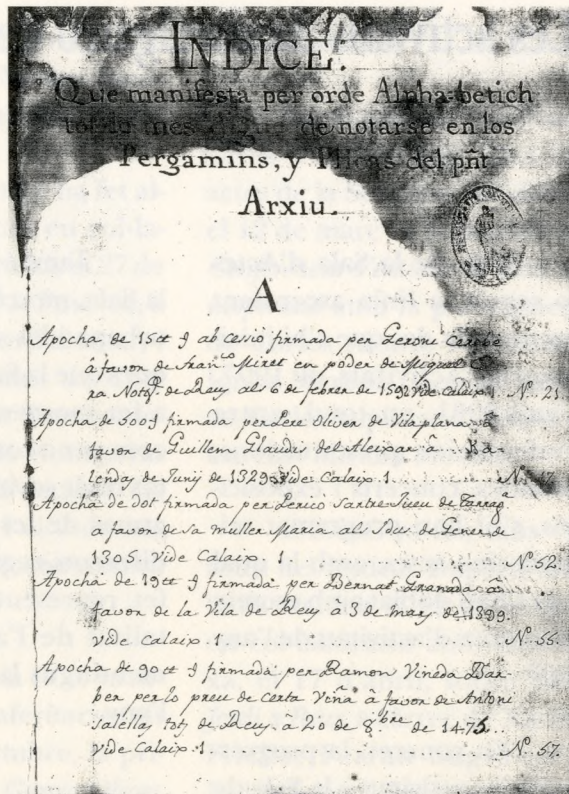 INDICE.
Que manifesta per orde Alphabetich
tot lo mes de notarse en los
Pergamins, y Plicas del pñt
Arxiu.
A
Apocha de 15 ab cessio firmada per Geroni
à favor de Fran.co Miret en poder de Miquel
ra Not de Reus als 6 de febrer de 1592 vide Calaix. 1. N.º 21
Apocha de 500 firmada per Pere Oliver de Vilaplana à
favor de Guillem Glaudis del Aleixar à Ka-
lendas de Juny de 1329 vide Calaix 1. N.º 17.
Apocha de dot firmada per Perico Sartre Jueu de Tarrag.ª
à favor de sa muller Maria als Idus de Gener de
1305. vide Calaix. 1 N.º 52.
Apocha de 19 firmada per Bernat Granada à
favor de la Vila de Reus à 3 de mars de 1399.
vide Calaix 1 N.º 55.
Apocha de 90 firmada per Ramon Vineda Bar-
ber per lo preu de certa Viña à favor de Antoni
Salellas tots de Reus à 20 de 8.bre de 1475.
vide Calaix. 1 N.º 57.